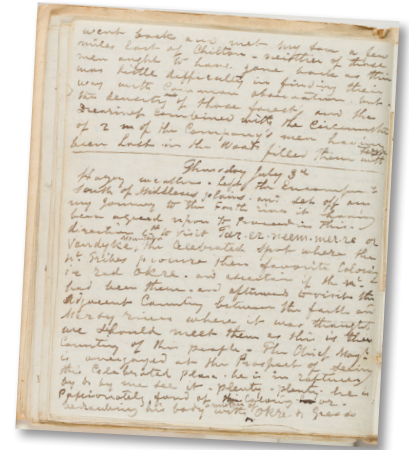 went back and met my son a few
miles East of Chilton - neither of these
men ought to have gone back as there
was little difficulty in finding their
way with common observation. but
the density of those forest, and the
dreariness combined with the circumstance
of 2 m of the Company's men having
been lost in the Woods filled them with
Thursday July 3rd
Hazy weather. left the Encampment
South of Middlesex plains. and set off on
my Journey to the Forth river it having
been agreed upon to proceed in this
direction to visit Tar.er.neem.mer.re or
Vandyke the Celebrated Spot where the
Nt. Tribes procure their favorite Coloring
in red Okre. and ascertain if the
had been there. and afterward to visit the
Adjacent Country between the forth and
Mersey rivers where it was thought
we should meet them as this is the
Country of this people. The Chief
is overjoyed at the Prospect of seeing
this Celebrated place. he is in raptures
by & by me see it. plenty. plenty. he is
Passionately fond of the Colouring or
his body with Okre & Grease